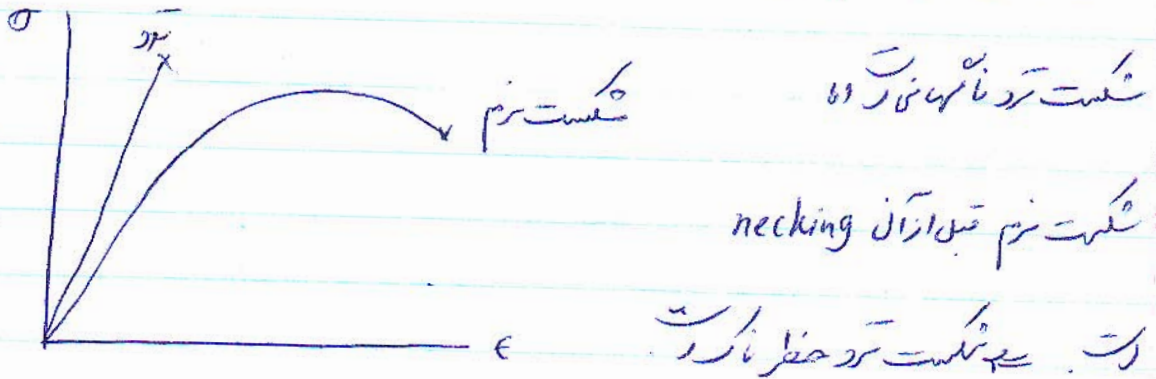 σ
ترد
شکست نرم
ε
شکست ترد ناگهانی است اما
شکست نرم قبل از آن necking
است. پس شکست ترد خطرناک است.